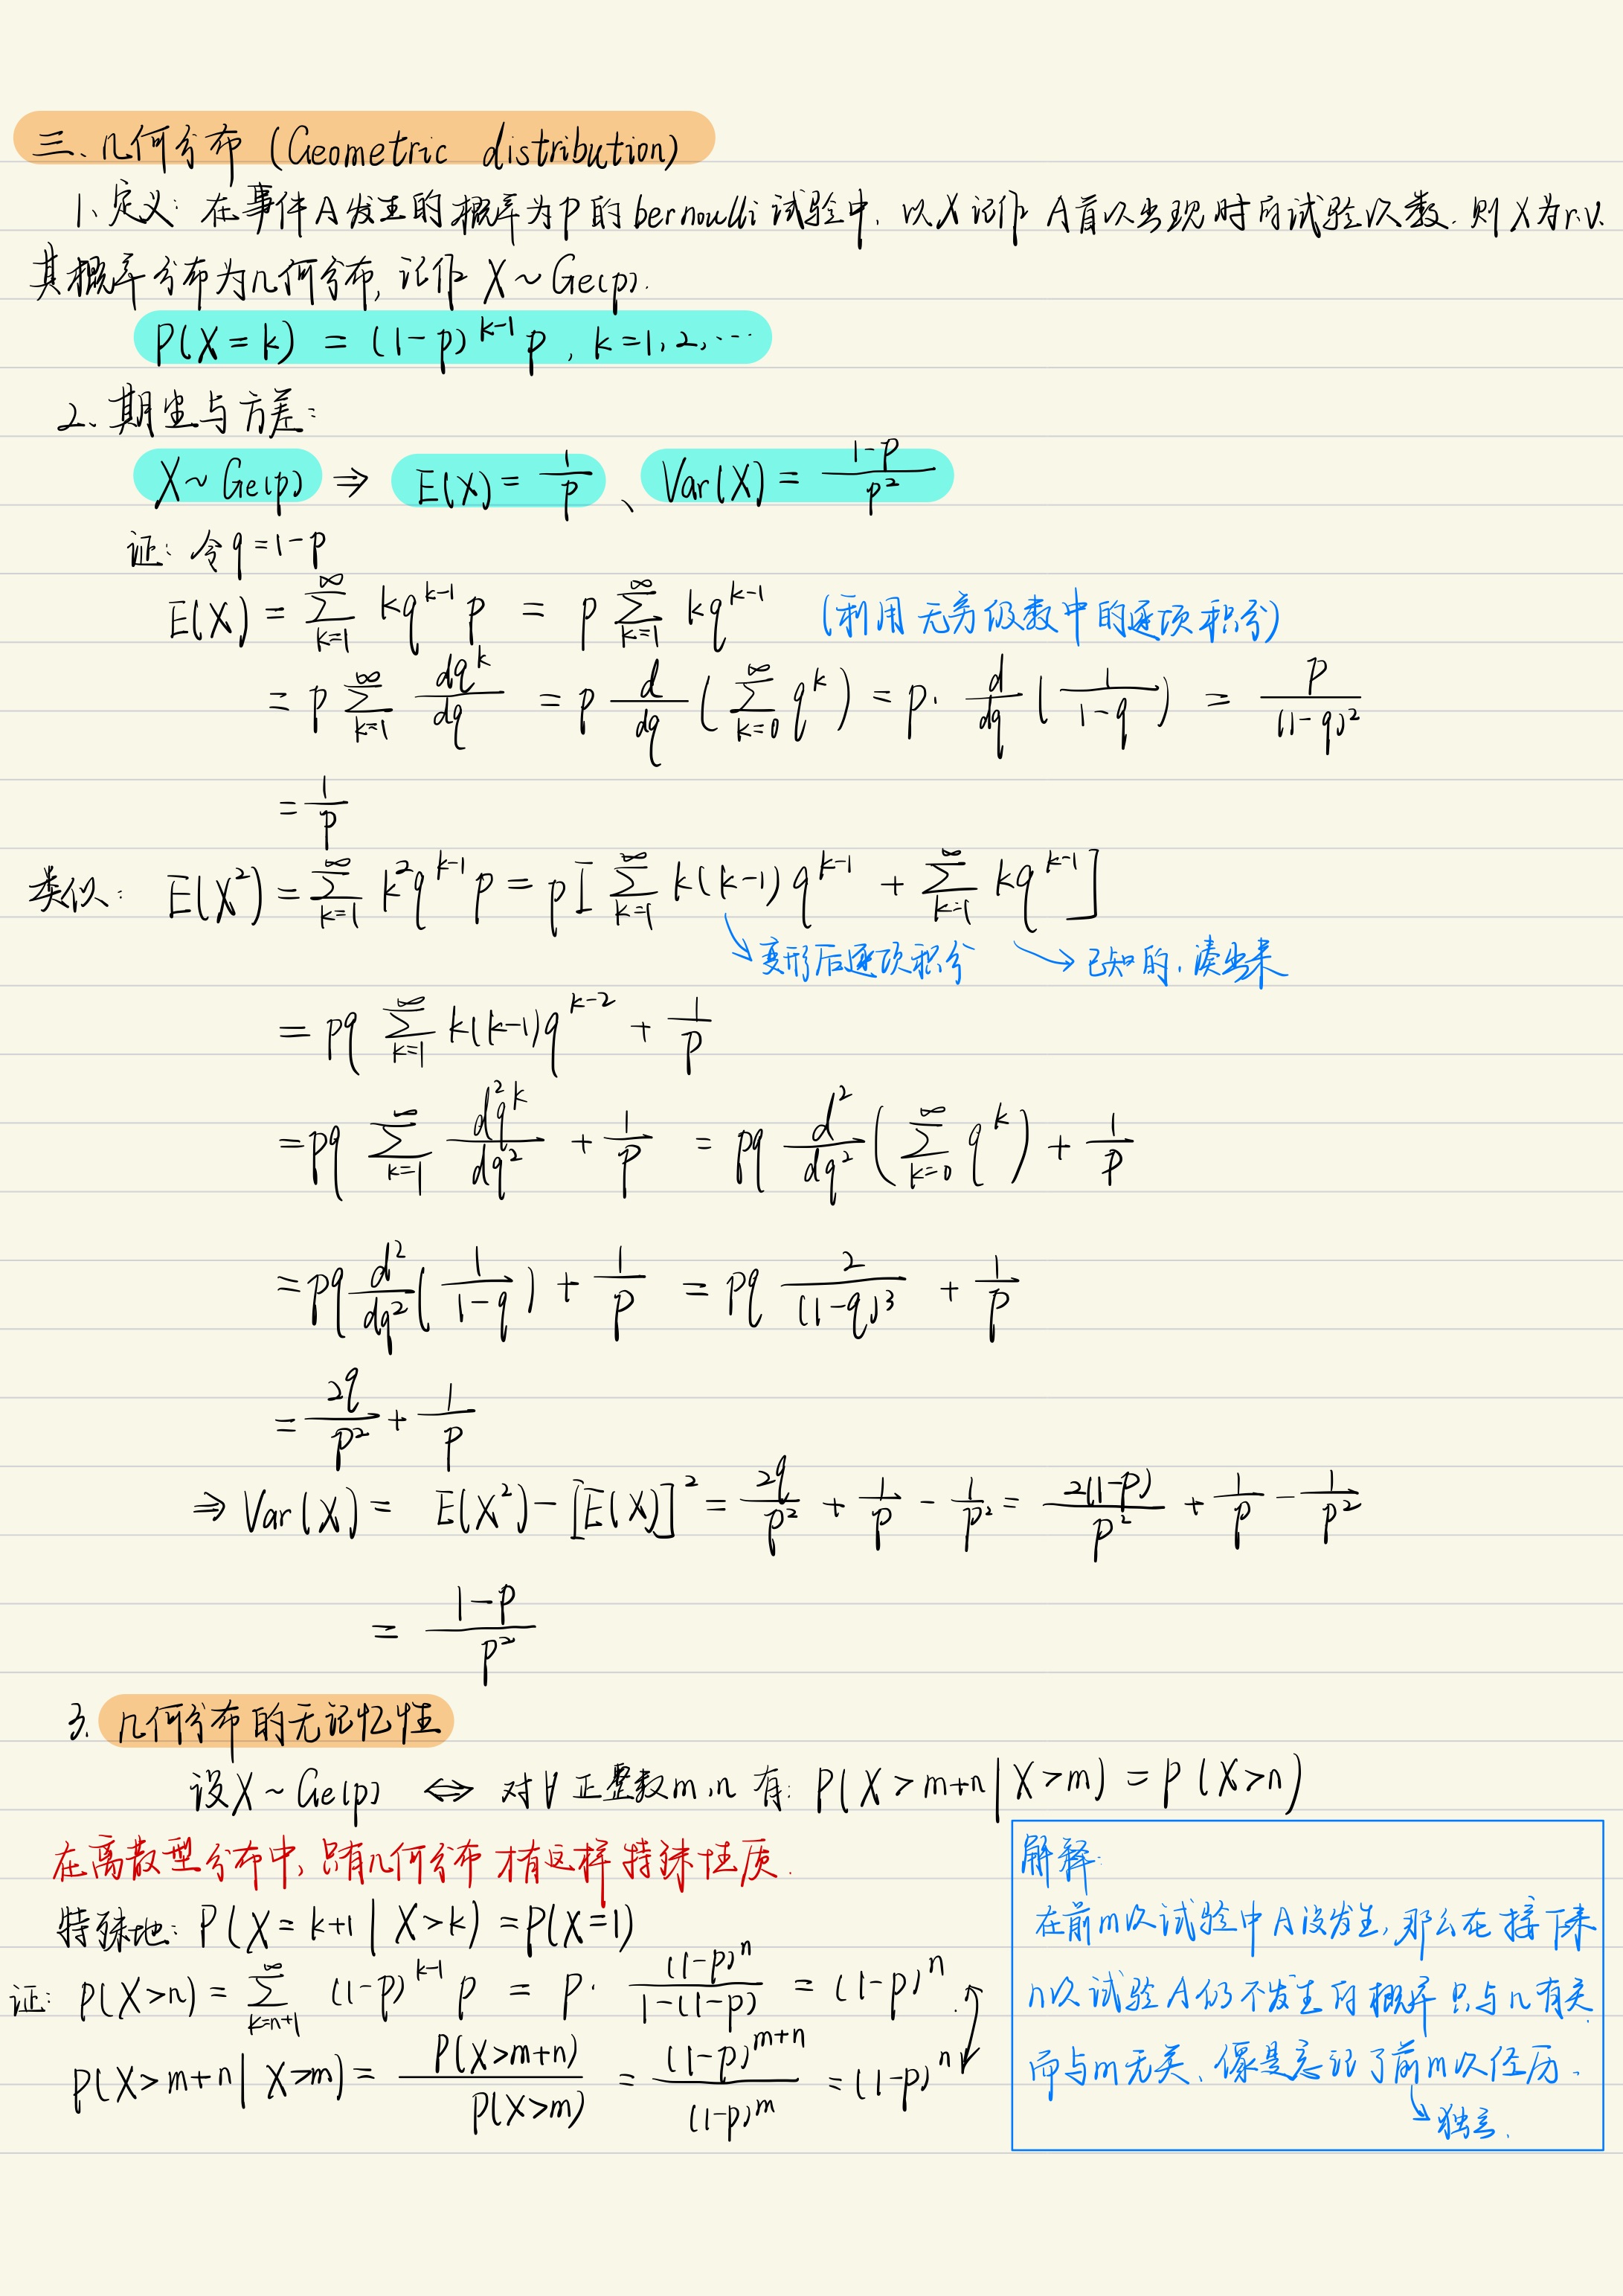 三、几何分布 (Geometric distribution)
1、定义: 在事件A发生的概率为p的bernoulli试验中, 以X记作 A首次出现时的试验次数. 则X为r.v.
其概率分布为几何分布, 记作 X~Ge(p).
P(X=k) = (1-p)^{k-1} p, k=1,2,···
2、期望与方差:
X~Ge(p) ⇒ E(X)=\frac{1}{p}、Var(X)=\frac{1-p}{p^2}
证: 令q=1-p
E(X) = \sum_{k=1}^{∞} kq^{k-1} p = p \sum_{k=1}^{∞} kq^{k-1} (利用无穷级数中的逐项积分)
= p \sum_{k=1}^{∞} \frac{dq^k}{dq} = p \frac{d}{dq} (\sum_{k=0}^{∞} q^k) = p· \frac{d}{dq} (\frac{1}{1-q}) = \frac{p}{(1-q)^2}
= \frac{1}{p}
类似: E(X^2) = \sum_{k=1}^{∞} k^2 q^{k-1} p = p[\sum_{k=1}^{∞} k(k-1) q^{k-1} + \sum_{k=1}^{∞} kq^{k-1}]
↘变形后逐项积分 ↘→已知的, 凑出来
= pq \sum_{k=1}^{∞} k(k-1)q^{k-2} + \frac{1}{p}
= pq \sum_{k=1}^{∞} \frac{d^2 q^k}{dq^2} + \frac{1}{p} = pq \frac{d^2}{dq^2} (\sum_{k=0}^{∞} q^k) + \frac{1}{p}
= pq \frac{d^2}{dq^2} (\frac{1}{1-q}) + \frac{1}{p} = pq \frac{2}{(1-q)^3} + \frac{1}{p}
= \frac{2q}{p^2} + \frac{1}{p}
⇒ Var(X) = E(X^2) - [E(X)]^2 = \frac{2q}{p^2} + \frac{1}{p} - \frac{1}{p^2} = \frac{2(1-p)}{p^2} + \frac{1}{p} - \frac{1}{p^2}
= \frac{1-p}{p^2}
3. 几何分布的无记忆性
设X~Ge(p) ⇔ 对∀正整数m,n 有: P(X>m+n|X>m) = P(X>n)
在离散型分布中, 只有几何分布才有这样特殊性质.
特殊地: P(X=k+1 | X>k) = P(X=1)
证: P(X>n) = \sum_{k=n+1}^{∞} (1-p)^{k-1} p = p· \frac{(1-p)^n}{1-(1-p)} = (1-p)^n
P(X>m+n| X>m) = \frac{P(X>m+n)}{P(X>m)} = \frac{(1-p)^{m+n}}{(1-p)^m} = (1-p)^n
解释:
在前m次试验中A没发生, 那么在接下来
n次试验A仍不发生的概率只与n有关
而与m无关、像是忘记了前m次经历.
↘独立.